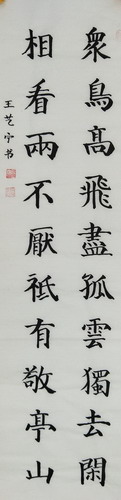 衆鳥髙飛盡孤雲獨去閑
相看兩不厭祗有敬亭山
王芝宁书